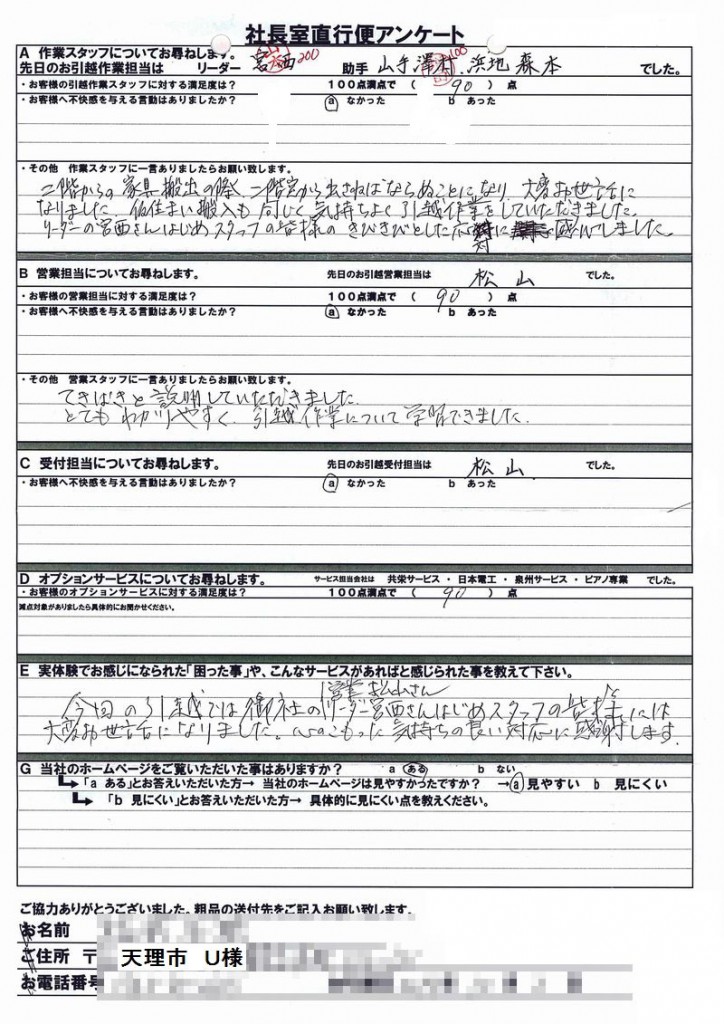 社長室直行便アンケート
A 作業スタッフについてお尋ねします。
先日のお引越作業担当は リーダー 宮西 200 助手 山手 澤村 100 浜地 森本 でした。
・お客様の引越作業スタッフに対する満足度は? 100点満点で ( 90 ) 点
・お客様へ不快感を与える言動はありましたか? a なかった b あった
・その他 作業スタッフに一言ありましたらお願い致します。
二階からの家具搬出の際、二階窓から出さねばならぬことになり 大変お世話に
なりました 仮住まい搬入も同じく気持ちよく引越作業をしていただきました。
リーダーの宮西さんはじめスタッフの皆様のきびきびとした応対に感心しました。
B 営業担当についてお尋ねします。 先日のお引越営業担当は 松山 でした。
・お客様の営業担当に対する満足度は? 100点満点で ( 90 ) 点
・お客様へ不快感を与える言動はありましたか? a なかった b あった
・その他 営業スタッフに一言ありましたらお願い致します。
てきぱきと説明していただきました
とてもわかりやすく、引越作業について学習できました.
C 受付担当についてお尋ねします。 先日のお引越受付担当は 松山 でした。
・お客様へ不快感を与える言動はありましたか? a なかった b あった
D オプションサービスについてお尋ねします。 サービス担当会社は 共栄サービス ・ 日本電工 ・ 泉州サービス ・ ピアノ専業 でした。
・お客様のオプションサービスに対する満足度は? 100点満点で ( 90 ) 点
減点対象がありましたら具体的にお聞かせください。
E 実体験でお感じになられた「困った事」や、こんなサービスがあればと感じられた事を教えて下さい。
営業 松山さん
今回の引越では御社のリーダー宮西さんはじめスタッフの皆様には
大変お世話になりました。心のこもった気持ちの良い対応に感謝します.
G 当社のホームページをご覧いただいた事はありますか? a ある b ない
→「a ある」とお答えいただいた方→ 当社のホームページは見やすかったですか? →a 見やすい b 見にくい
→「b 見にくい」とお答えいただいた方→ 具体的に見にくい点を教えください。
ご協力ありがとうございました。粗品の送付先をご記入お願い致します。
お名前
ご住所 〒 天理市 U様
お電話番号